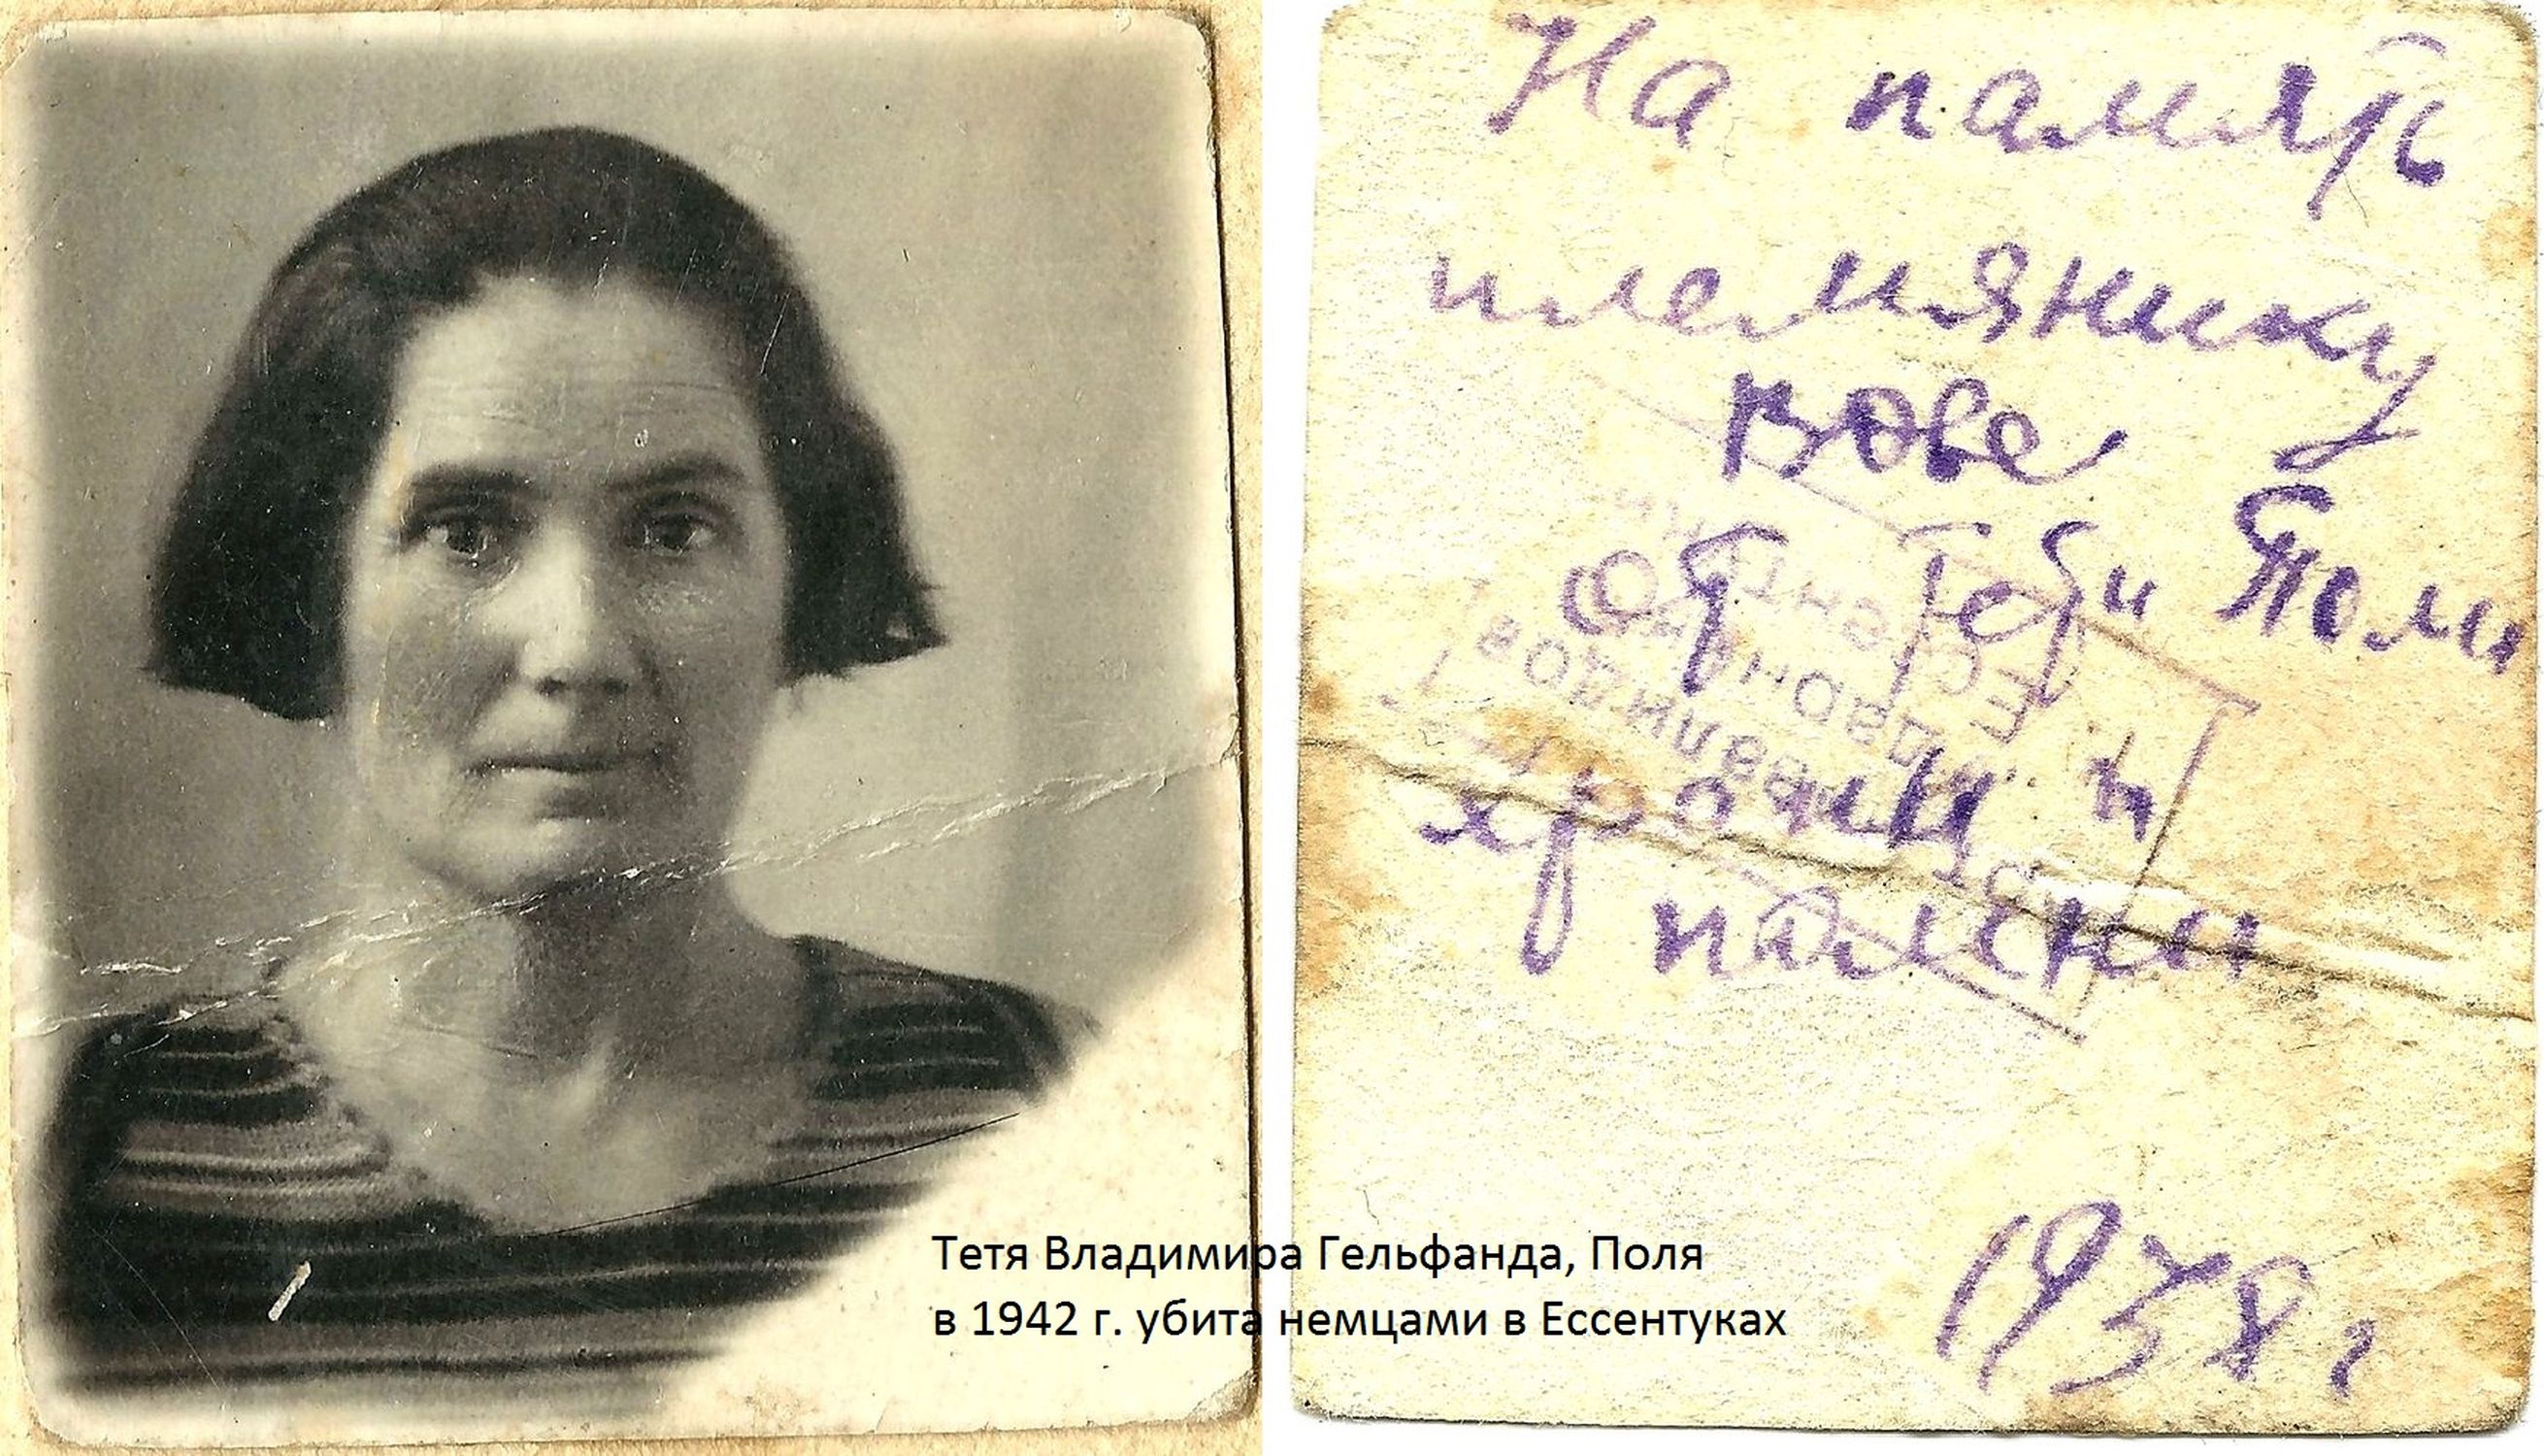 На память
племянику
вове
От Тети Поли
храни и
инвалидов
Ессентуки
1938 г
Тетя Владимира Гельфанда, Поля
в 1942 г. убита немцами в Ессентуках